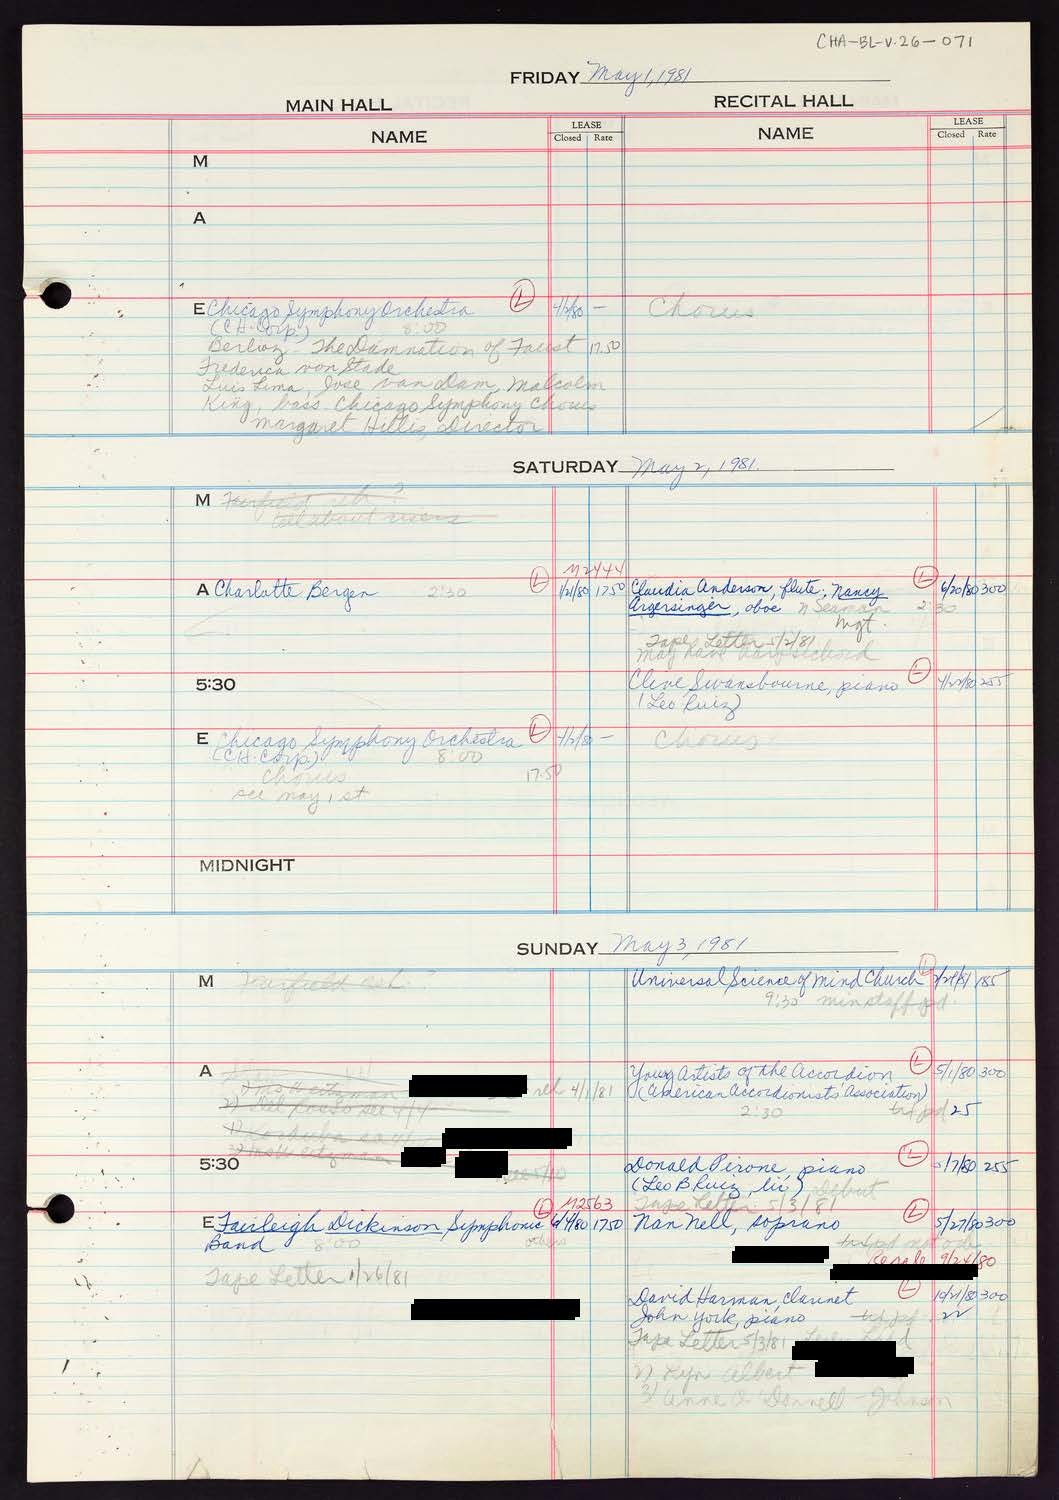 CHA-BL-V.26-071
FRIDAY May 1, 1981
MAIN HALL
RECITAL HALL
NAME
LEASE
Closed Rate
NAME
LEASE
Closed Rate
M
A
E Chicago Symphony Orchestra L 4/2/80 –
(C.H. Corp.) 8:00
Berlioz - The Damnation of Faust 17.50
Frederica von Stade
Luis Lima, Jose van Dam, Malcolm
King, bass. Chicago Symphony Chorus
Margaret Hillis, Director
Chorus
SATURDAY May 2, 1981.
M Fairfield ?
call about
M2444
A Charlotte Bergen 2:30 L 1/21/80 1750
Claudia Anderson, flute; Nancy L 6/20/80 300
Argersinger, oboe N Seaman 2:30
Mgt.
Tape Letter 5/2/81
may have harpsichord
5:30
Clive Swansbourne, piano L 4/22/80 255
(Leo Ruiz)
E Chicago Symphony Orchestra L 4/2/80 –
(C.H. Corp.) 8:00
Chorus 17.50
see May 1st
Chorus
MIDNIGHT
SUNDAY May 3, 1981
M Fairfield
Universal Science of Mind Church L 2/24/81 185
9:30 min staff pd.
A
reh 4/1/81
2) Del Rosso see 4/4
Young Artists of the Accordion L 5/1/80 300
(American Accordionists' Association)
2:30 pd 25
5:30
Donald Pirone, piano L /7/80 255
(Leo B Ruiz, liv) Debut
Tape Letter 5/3/81
L M2563
E Fairleigh Dickinson Symphonic 6/4/80 1750
Band 8:00
Tape Letter 1/26/81
Nan Nell, soprano L 5/27/80 300
9/24/80
David Harman, clarinet L 10/21/80 300
John York, piano 22
Tape Letter 5/3/81
2) Lyn Albert
3) Anne O'Donnell - Johnson